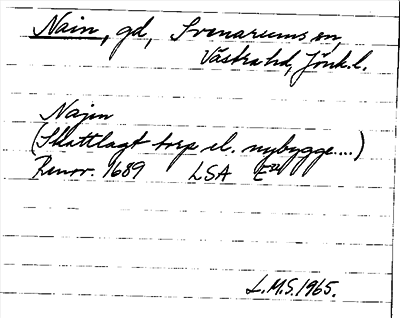 Nain, gd, Svenarums sn,
Västra hd, Jönk.l.
Najen
(Skattlagt torp el. nybygge....)
Renov. 1689 LSA E22
L.M.S. 1965.